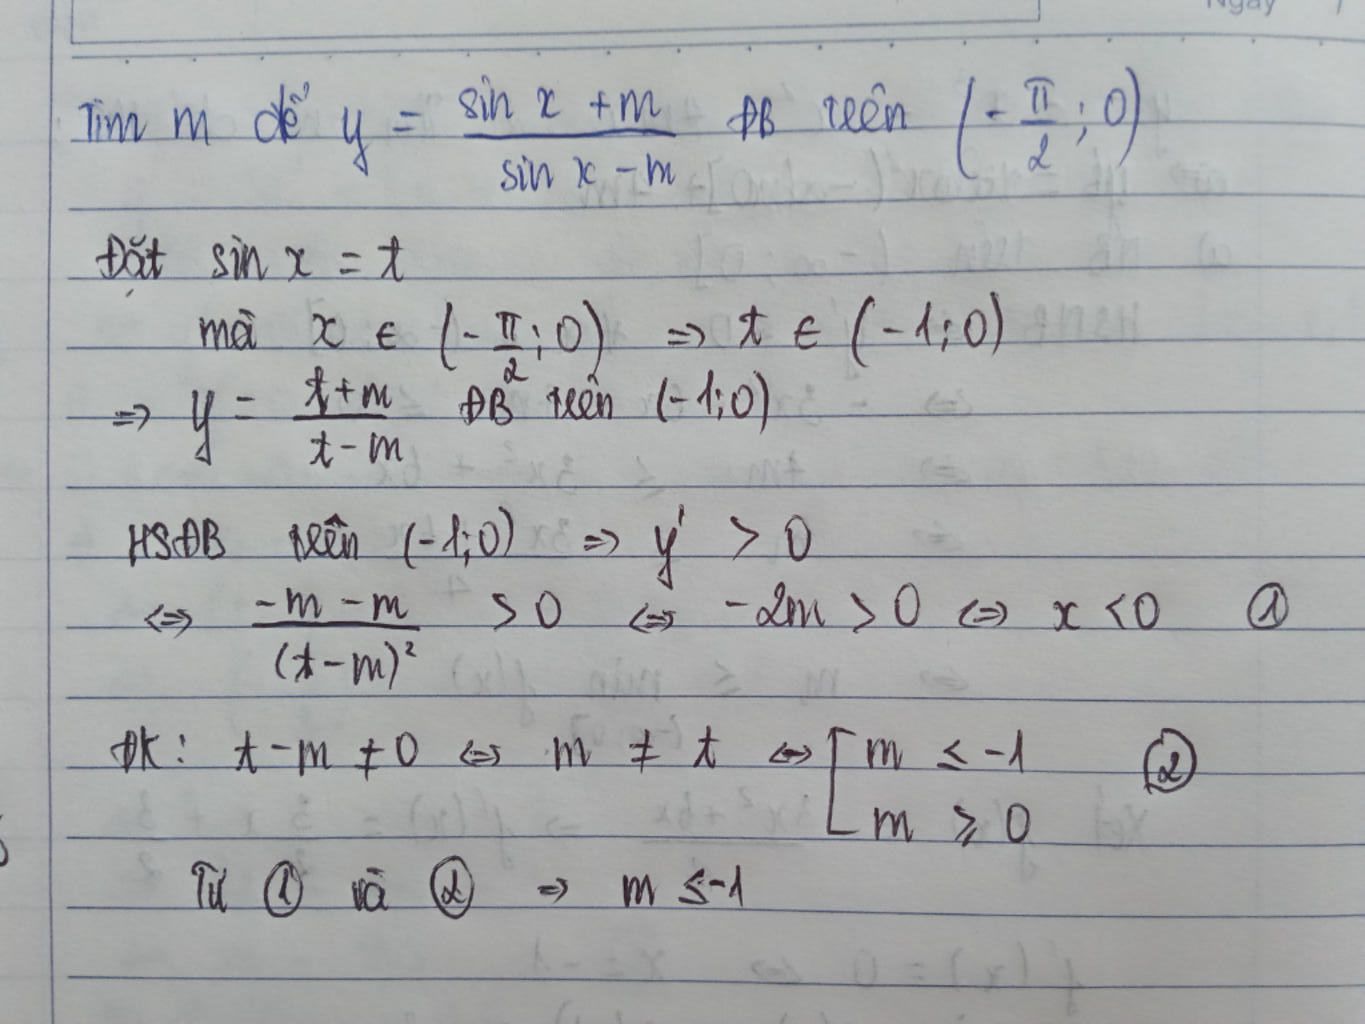 Ngày
Tìm m để y = \frac{sin x + m}{sin x - m} ĐB trên (-\frac{π}{2}; 0)
Đặt sin x = t
mà x ∈ (-\frac{π}{2}; 0) => t ∈ (-1; 0)
=> y = \frac{t+m}{t-m} ĐB trên (-1; 0)
HSĐB trên (-1; 0) => y' > 0
<=> \frac{-m-m}{(t-m)²} > 0 <=> -2m > 0 <=> x < 0 ①
ĐK: t-m ≠ 0 <=> m ≠ t <=> [ m ≤ -1 ②
m ≥ 0
Từ ① và ② => m ≤ -1